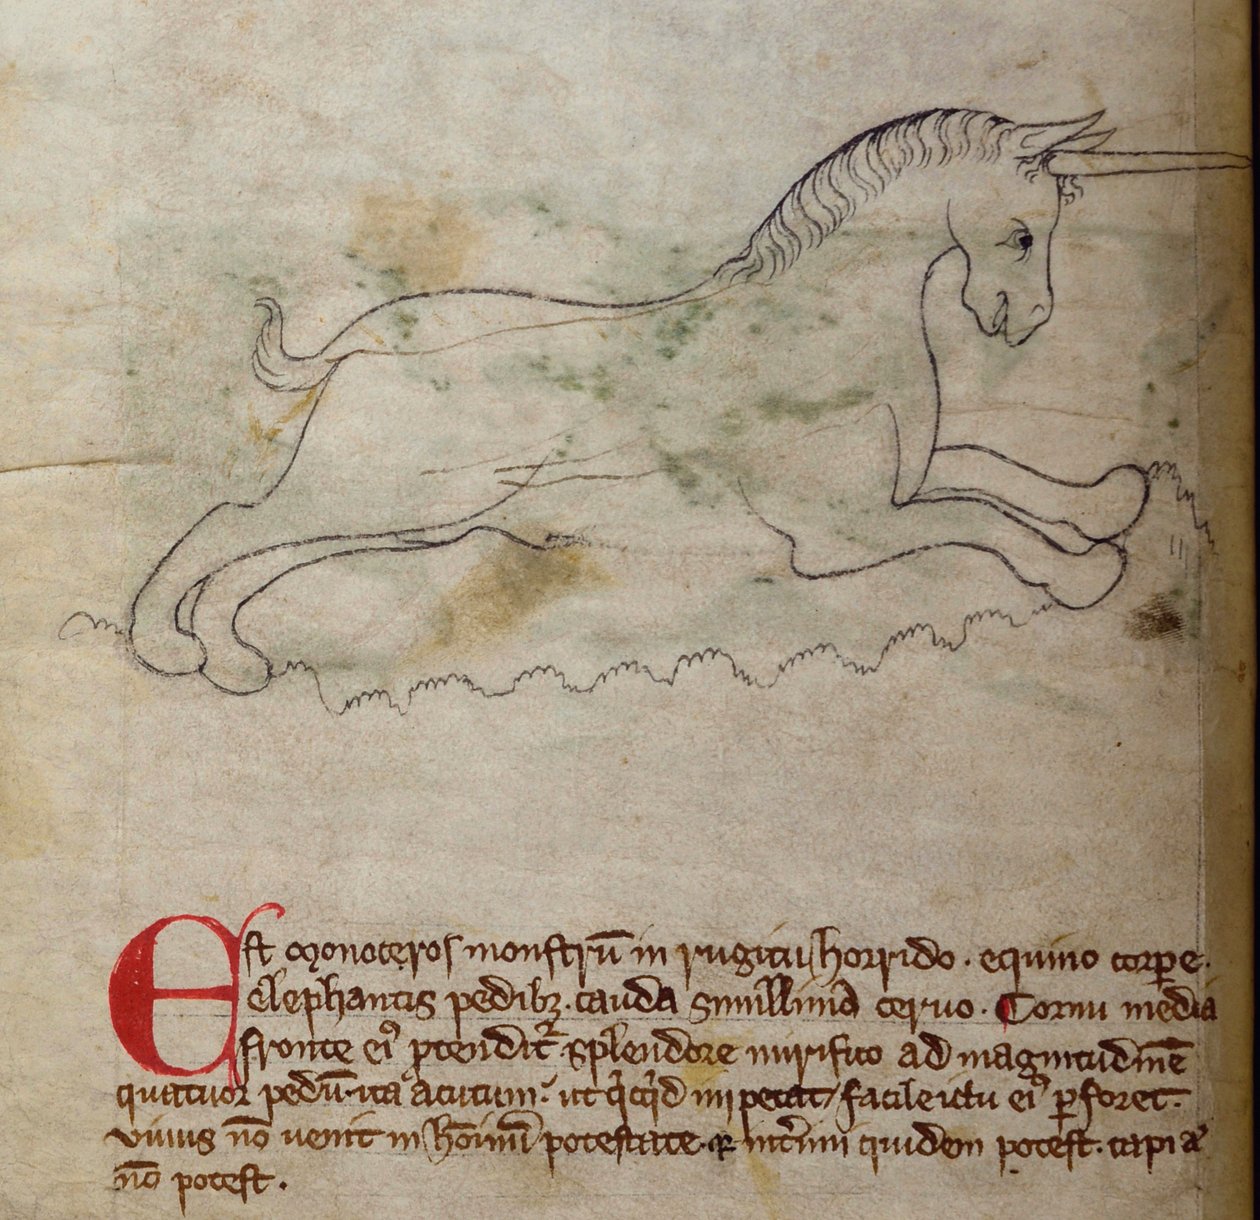 Est monoceros monstrū in rugitu horrido. equino corꝑe.
elephantis pedibꝫ. cauda simillima ceruo. Cornu media
fronte eiꝰ ꝓtenditᷣ splendore mirifico ad magnitudinē
quatuor pedū. ita acutum. ut qͥcqͥd impetat/ facile ictu eiꝰ ꝑforet.
viuus nō uenit in hoīnū potestate. ⁊ int̾imi quidem potest. capi
nō potest.